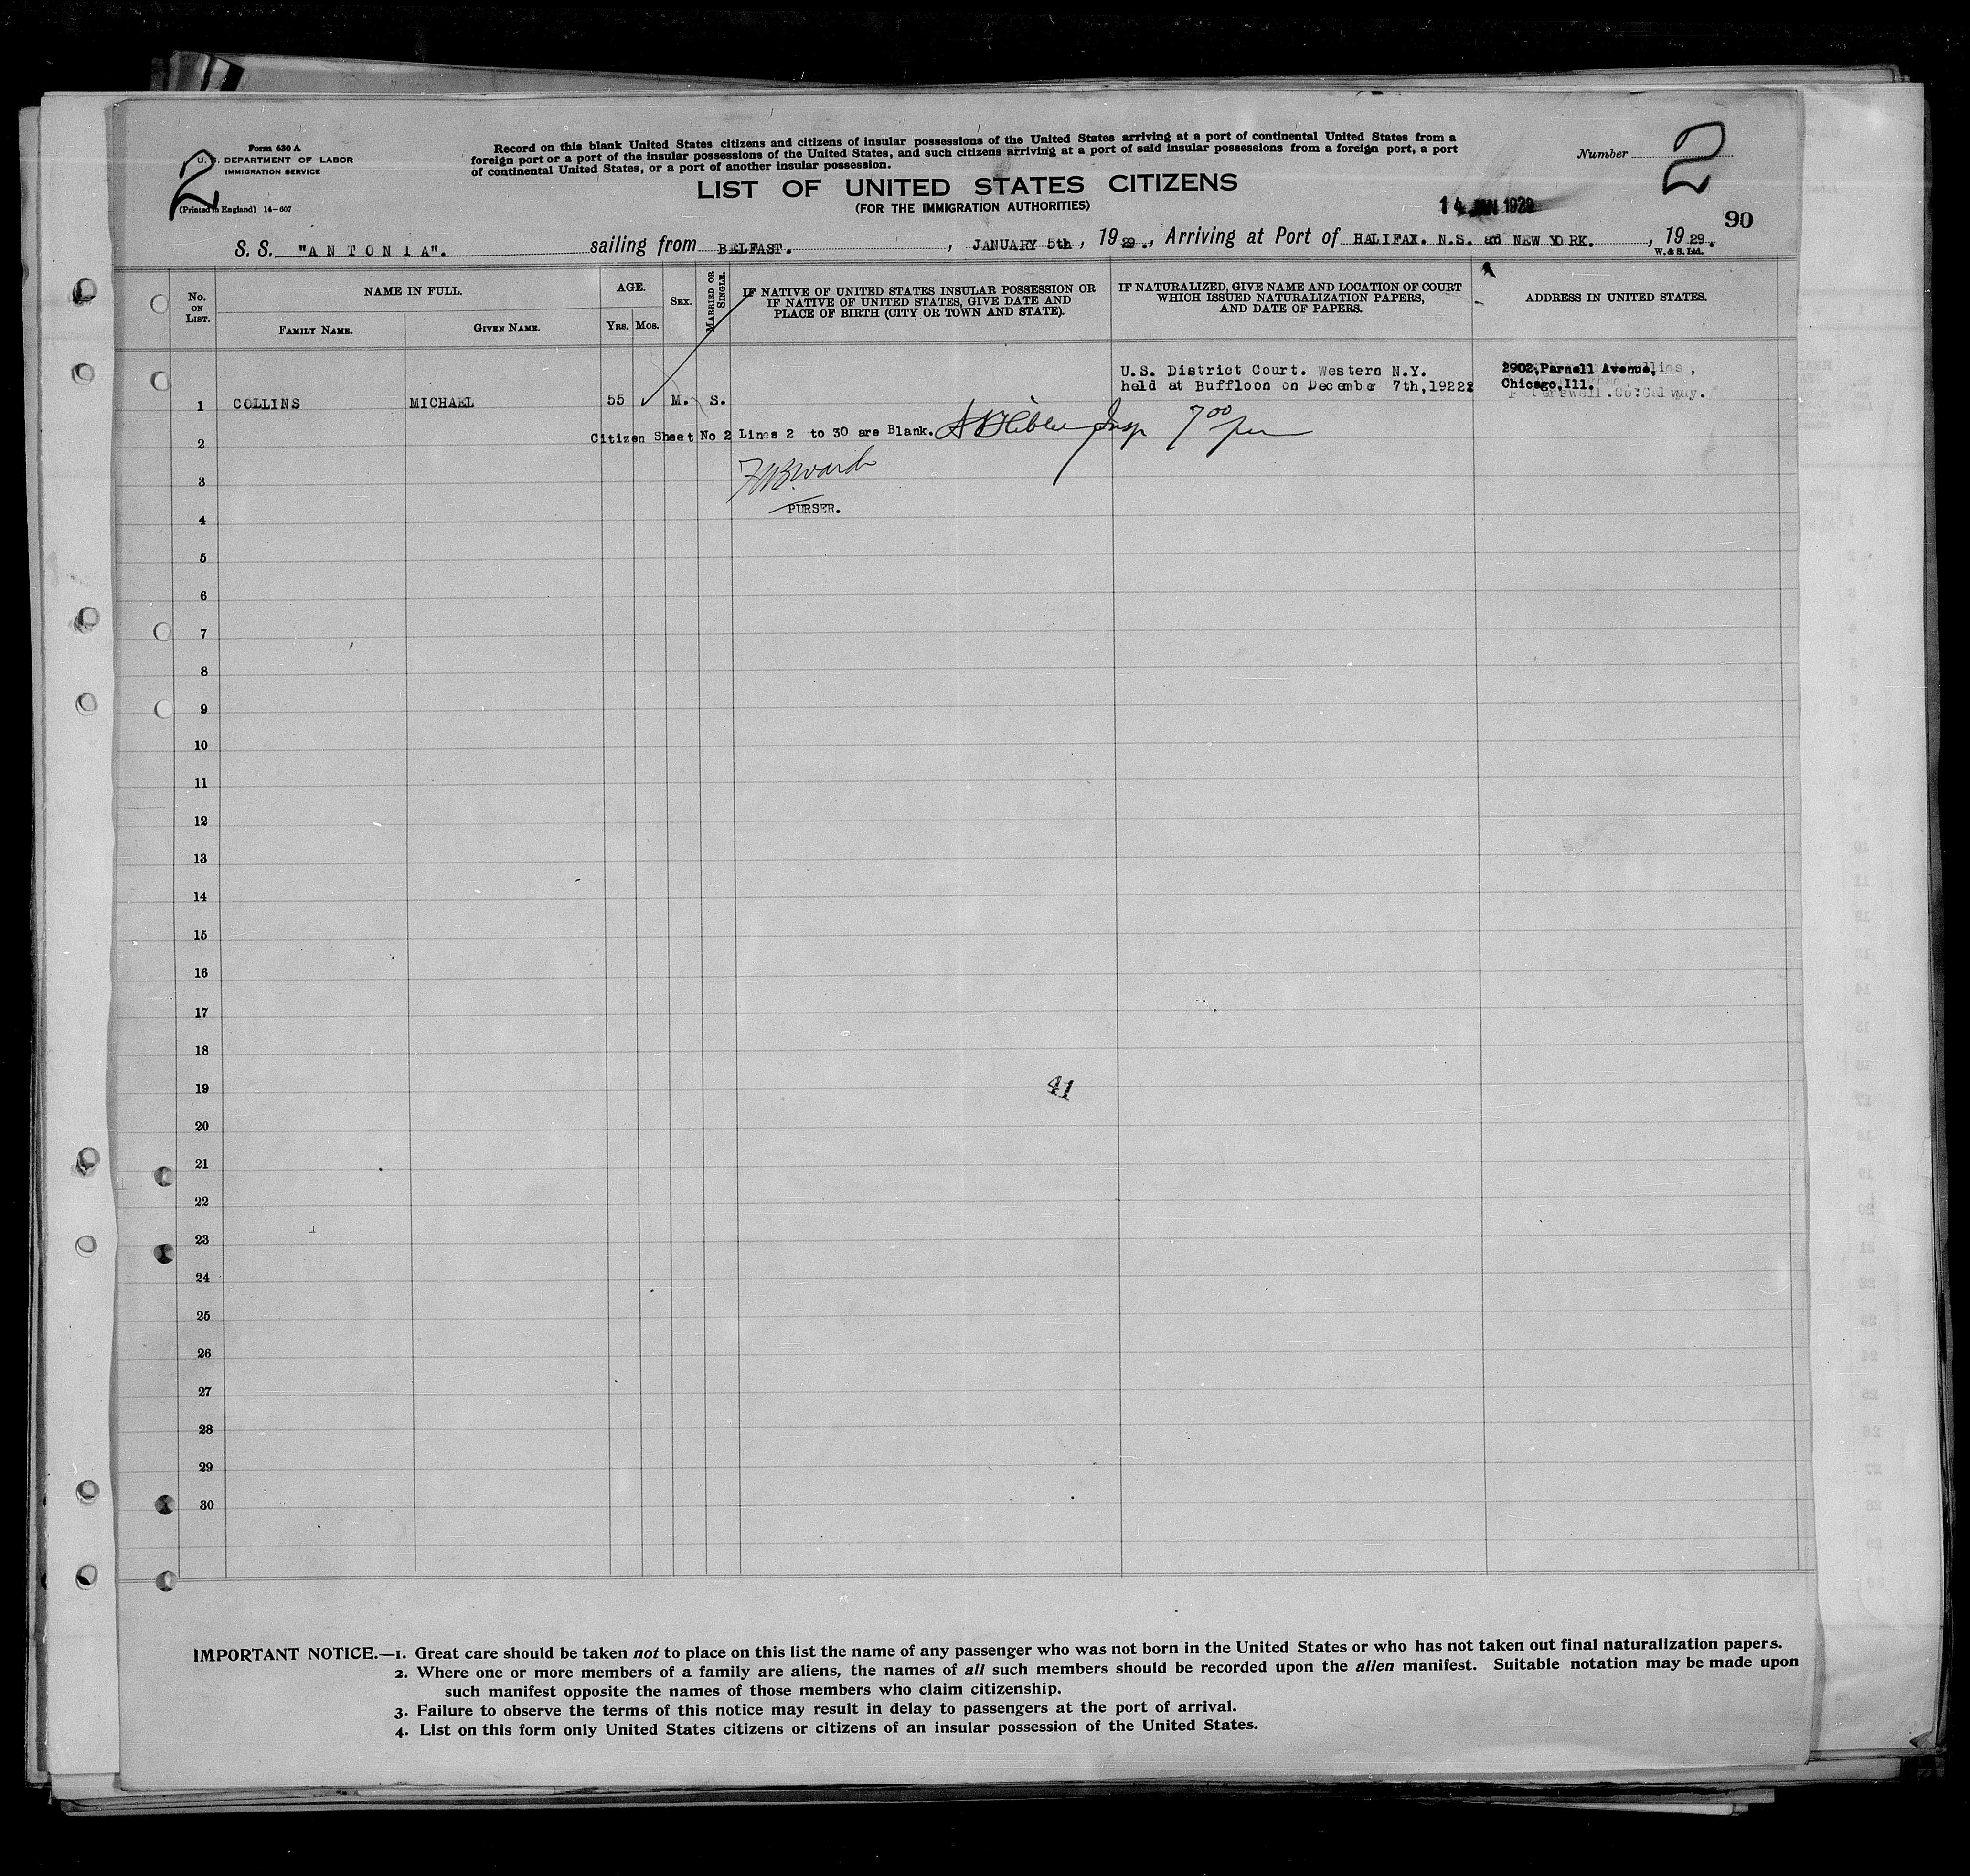 Form 630 A
U. S. DEPARTMENT OF LABOR
IMMIGRATION SERVICE
(Printed in England) 14-607
2
Record on this blank United States citizens and citizens of insular possessions of the United States arriving at a port of continental United States from a
foreign port or a port of the insular possessions of the United States, and such citizens arriving at a port of said insular possessions from a foreign port, a port
of continental United States, or a port of another insular possession.
LIST OF UNITED STATES CITIZENS
(FOR THE IMMIGRATION AUTHORITIES)
Number 2
14 JAN 1929
90
S. S. "ANTONIA". sailing from BELFAST. , JANUARY 5th, 1929., Arriving at Port of HALIFAX. N.S. and NEW YORK. , 1929.
W. & S. Ltd.
No. ON LIST.
NAME IN FULL.
FAMILY NAME.
GIVEN NAME.
AGE.
YRS. MOS.
SEX.
MARRIED OR SINGLE.
IF NATIVE OF UNITED STATES INSULAR POSSESSION OR
IF NATIVE OF UNITED STATES, GIVE DATE AND
PLACE OF BIRTH (CITY OR TOWN AND STATE).
IF NATURALIZED, GIVE NAME AND LOCATION OF COURT
WHICH ISSUED NATURALIZATION PAPERS,
AND DATE OF PAPERS.
ADDRESS IN UNITED STATES.
U.S. District Court. Western N.Y.
held at Buffloon on December 7th,1922
2902,Parnell Avenue,
Chicago,Ill.
1 COLLINS MICHAEL 55 M. S.
Citizen Sheet No 2 Lines 2 to 30 are Blank. Insp 7 00 pm
2
3
PURSER.
4
5
6
7
8
9
10
11
12
13
14
15
16
17
18
19
41
20
21
22
23
24
25
26
27
28
29
30
IMPORTANT NOTICE.—1. Great care should be taken not to place on this list the name of any passenger who was not born in the United States or who has not taken out final naturalization papers.
2. Where one or more members of a family are aliens, the names of all such members should be recorded upon the alien manifest. Suitable notation may be made upon
such manifest opposite the names of those members who claim citizenship.
3. Failure to observe the terms of this notice may result in delay to passengers at the port of arrival.
4. List on this form only United States citizens or citizens of an insular possession of the United States.